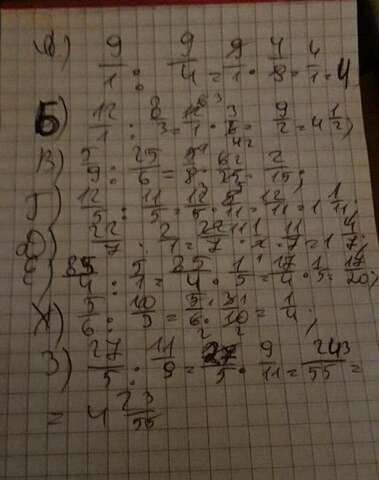 А) 9/1 : 9/4 = 9/1 · 4/9 = 4/1 = 4
Б) 12/1 : 8/3 = 12/1 · 3/8 = 9/2 = 4 1/2;
В) 5/9 : 25/6 = 5/9 · 6/25 = 2/15;
Г) 12/5 : 11/5 = 12/5 · 5/11 = 12/11 = 1 1/11;
Д) 22/7 : 2/1 = 22/7 · 1/2 = 11/7 = 1 4/7;
Е) 85/4 : 5/1 = 85/4 · 1/5 = 17/4 · 1/5 = 17/20;
Ж) 5/6 : 10/3 = 5/6 · 3/10 = 1/4;
З) 27/5 : 11/9 = 27/5 · 9/11 = 243/55 =
= 4 23/55